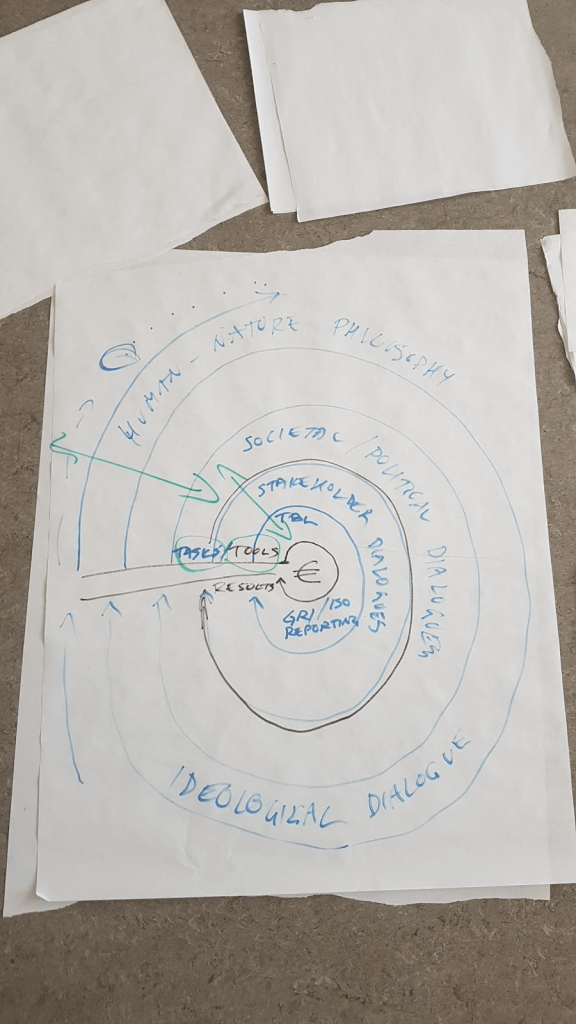 HUMAN - NATURE PHILOSOPHY
SOCIETAL / POLITICAL DIALOGUES
STAKEHOLDER DIALOGUES
TBL
TASKS/TOOLS
€
RESULTS
GRI/ISO
REPORTING
IDEOLOGICAL DIALOGUE